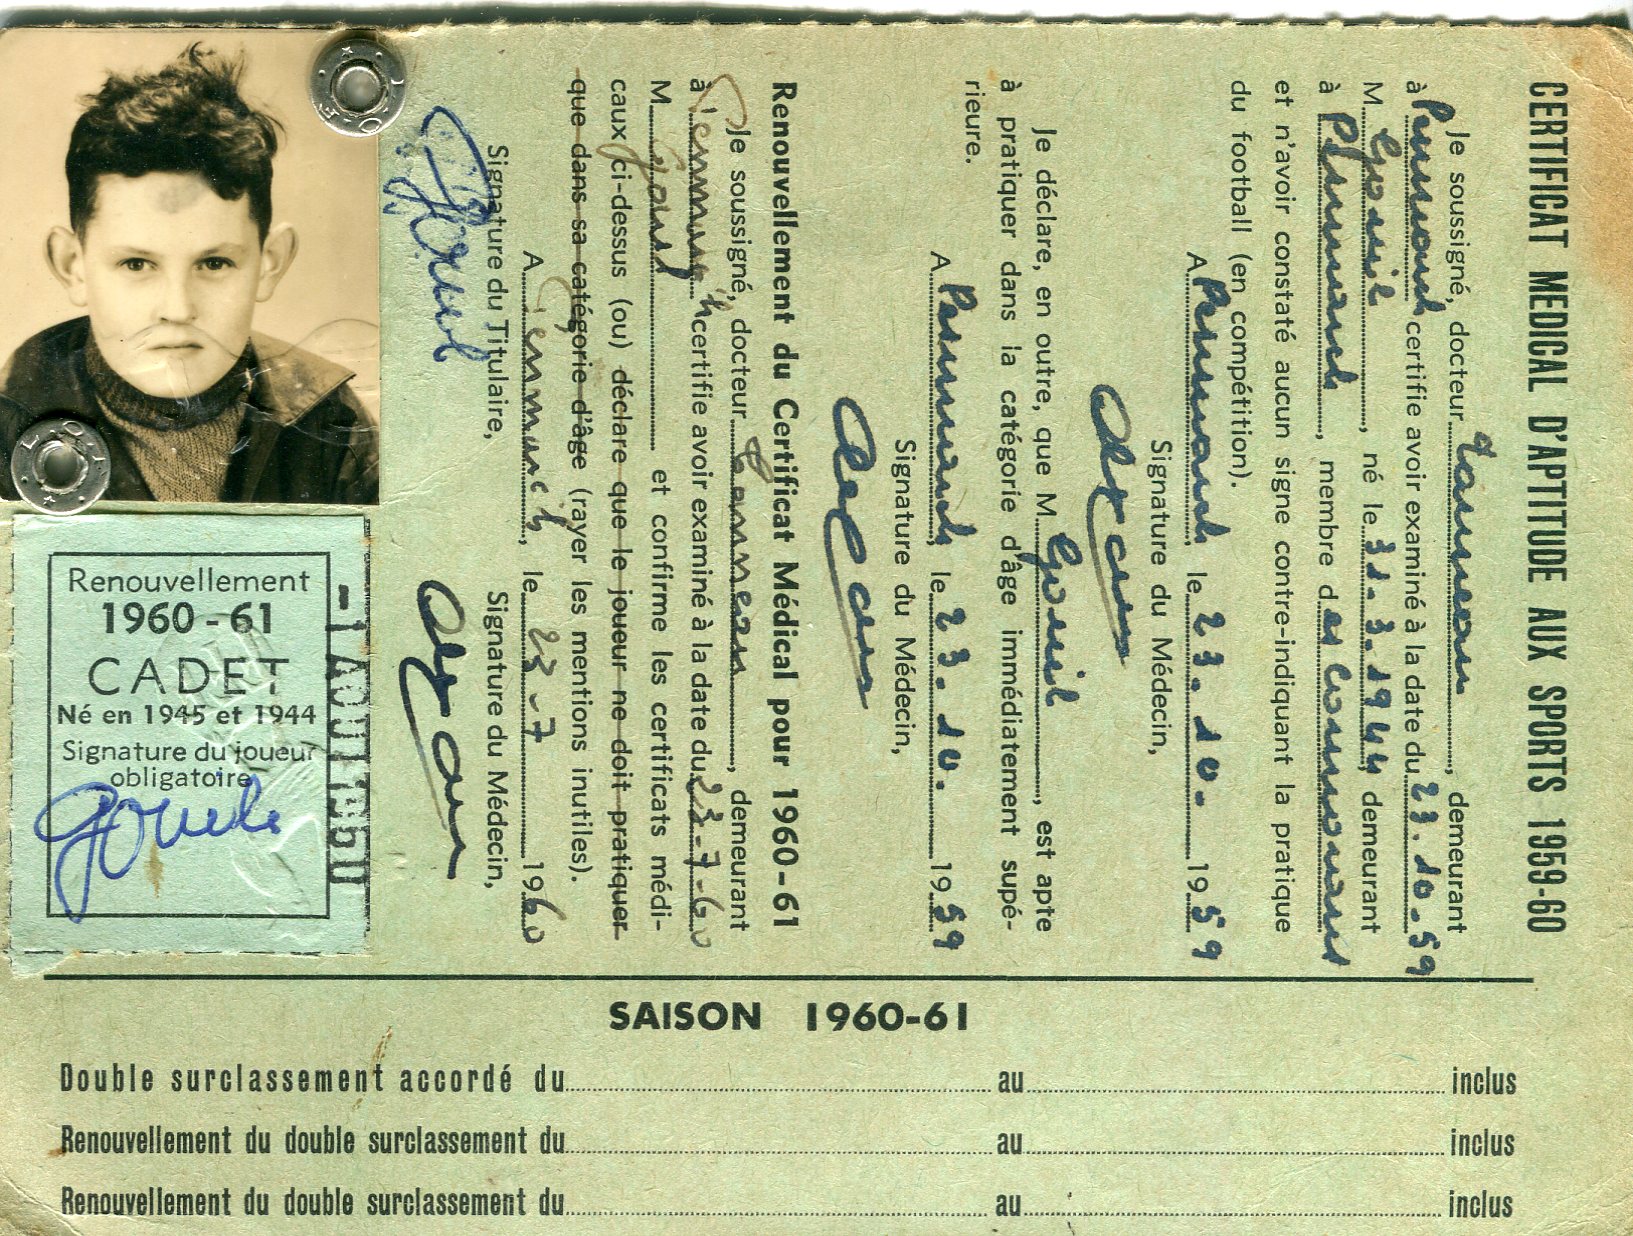 CERTIFICAT MEDICAL D'APTITUDE AUX SPORTS 1959-60
Je soussigné, docteur, demeurant
à certifie avoir examiné à la date du 23.10.59
M. Gouil, né le 31.3.1944 demeurant
à, membre d
et n'avoir constaté aucun signe contre-indiquant la pratique
du football (en compétition).
A, le 23.10. 1959
Signature du Médecin,
Je déclare, en outre, que M. Gouil, est apte
à pratiquer dans la catégorie d'âge immédiatement supé-
rieure.
A, le 23.10. 1959
Signature du Médecin,
Renouvellement du Certificat Médical pour 1960-61
Je soussigné, docteur, demeurant
à certifie avoir examiné à la date du 23-7-60
M. Gouil et confirme les certificats médi-
caux ci-dessus (ou) déclare que le joueur ne doit pratiquer
que dans sa catégorie d'âge (rayer les mentions inutiles).
A, le 23-7 1960
Signature du Titulaire, Signature du Médecin,
Renouvellement
1960-61
CADET
Né en 1945 et 1944
Signature du joueur
obligatoire
-1 AOUT 1960
SAISON 1960-61
Double surclassement accordé du au inclus
Renouvellement du double surclassement du au inclus
Renouvellement du double surclassement du au inclus